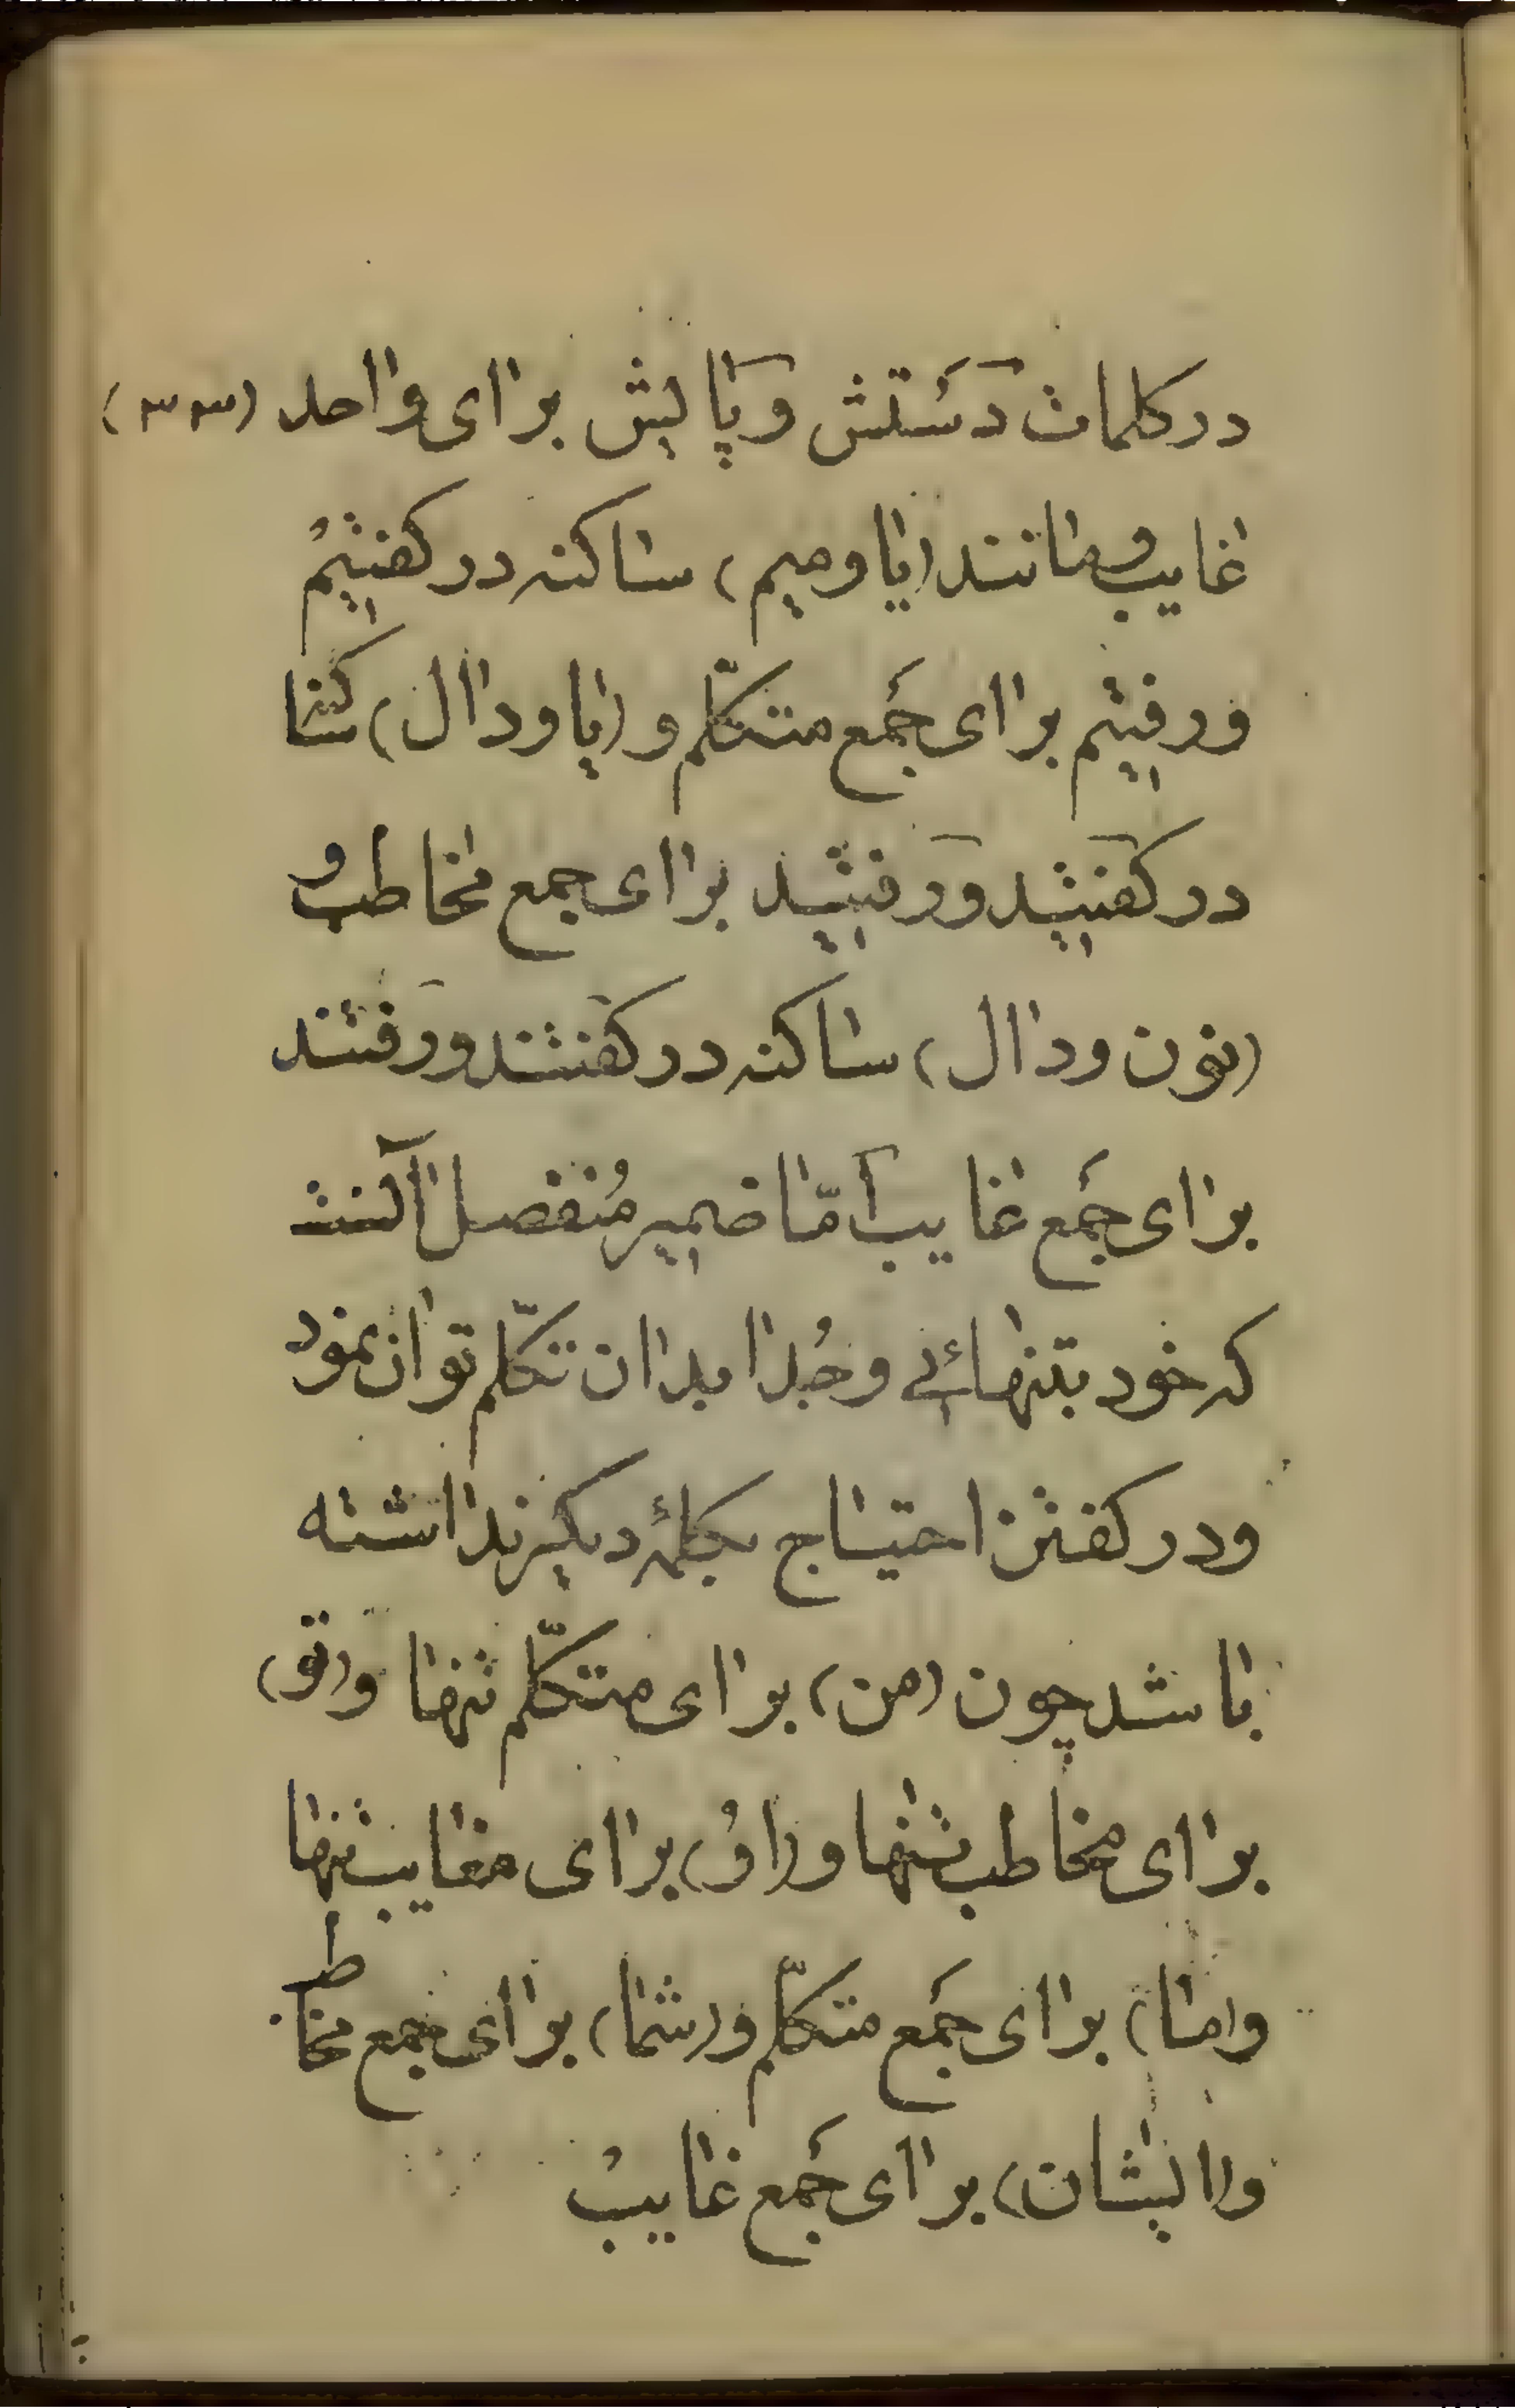 در کلمات دستش و پایش برای واحد (۳۳)
غایب و مانند (یا و میم) ساکنه در کفتیم
و رفتیم برای جمع متکلّم و (یا و دال) ساکنه
در کفتید و رفتید برای جمع مخاطب و
(نون و دال) ساکنه در کفتند و رفتند
برای جمع غایب امّا ضمیر مُنفصل آنست
که خود بتنهائی و جُدا بدان تکلّم توان نمود
و در کفتن احتیاج بکلمهٔ دیکر نداشته
باشد چون (من) برای متکلّم تنها و (تو)
برای مخاطب تنها و (اوُ) برای مغایب تنها
و (ما) برای جمع متکلّم و (شما) برای جمع مخاطب
و (ایشان) برای جمع غایب